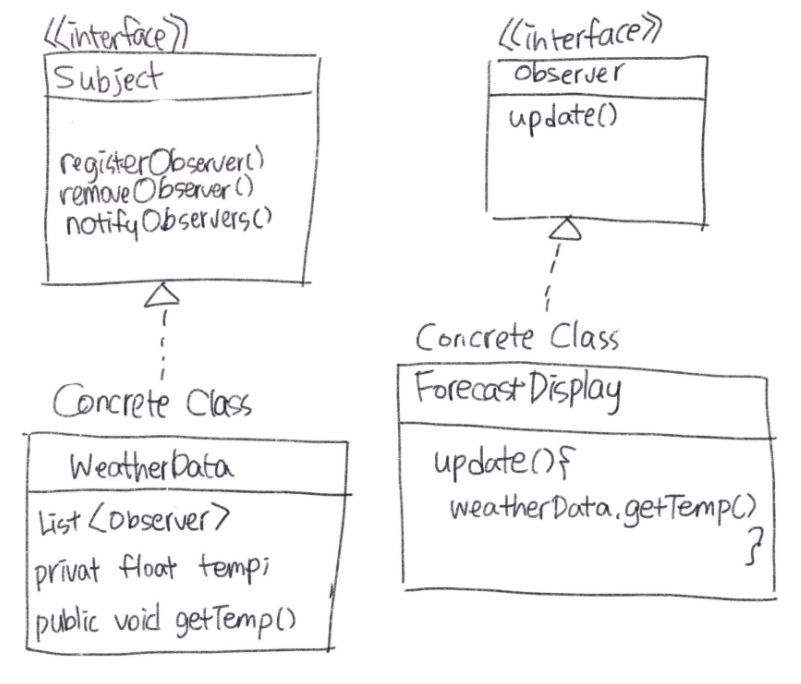 <<interface>>
Subject
registerObserver()
removeObserver()
notifyObservers()
Concrete Class
WeatherData
List <Observer>
privat float temp;
public void getTemp()
<<interface>>
Observer
update()
Concrete Class
ForecastDisplay
update(){
weatherData.getTemp()
}